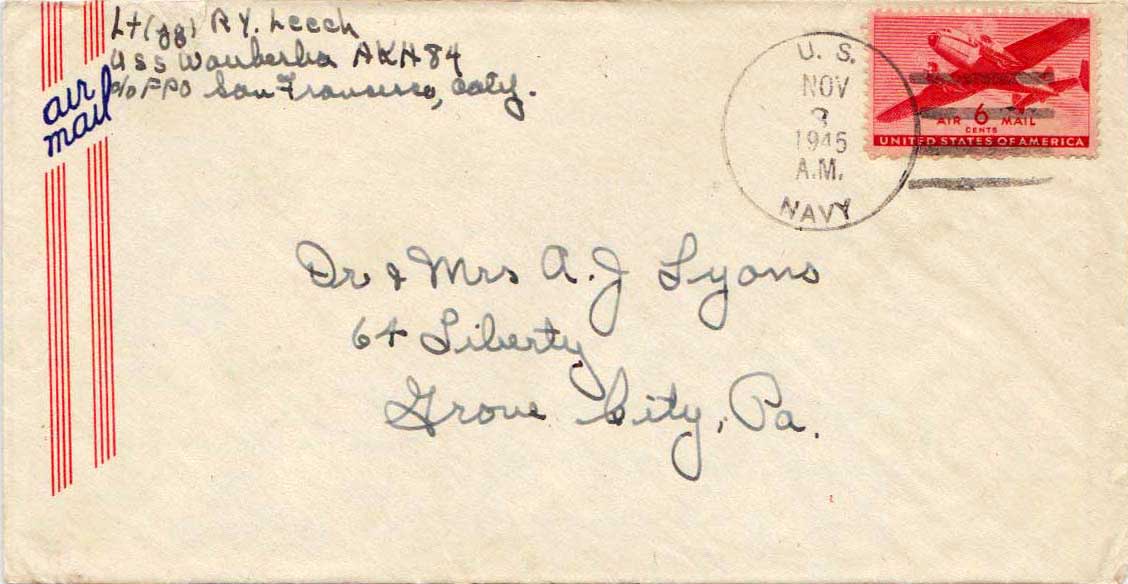 Lt(jg) R Y. Leech
USS Waukesha AKA 84
c/o FPO San Francisco, Caly.
air
mail
U. S.
NOV
1945
A.M.
NAVY
AIR 6 MAIL
CENTS
UNITED STATES OF AMERICA
Dr & Mrs A. J Lyons
64 Liberty
Grove City, Pa.